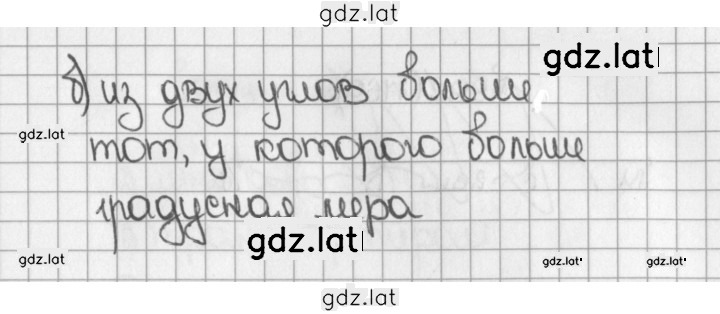 gdz.lat
б) из двух углов больше
gdz.lat
тот, у которого больше
gdz.lat
градусная мера
gdz.lat
gdz.lat
gdz.lat
gdz.lat
gdz.lat